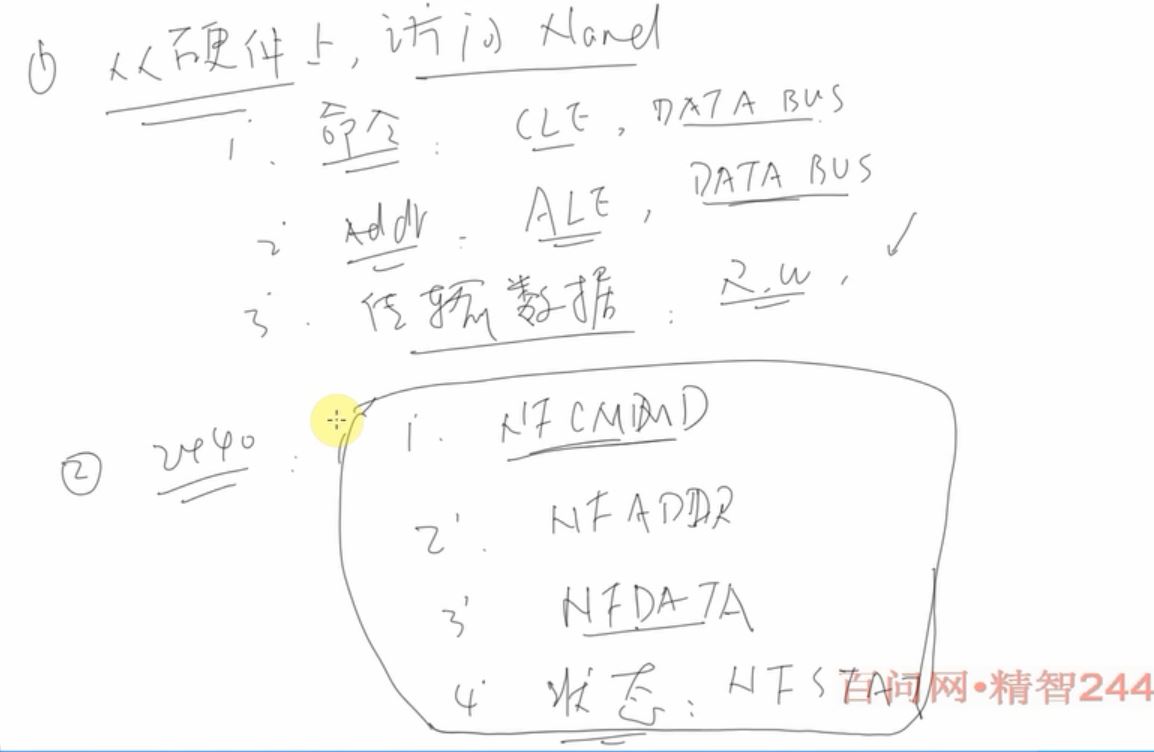 ① 从硬件上, 访问 Nand
1. 命令: CLE, DATA BUS
2. Addr: ALE, DATA BUS
3. 传输数据: R.W.
② 2440: 1. NFCMMD
2'. NFADDR
3' NFDATA
4' 状态: NFSTAT
百问网•精智244